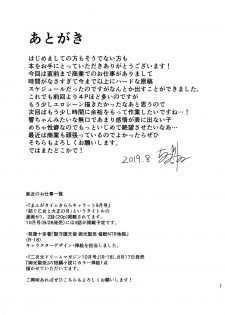 あとがき
はじめましての方もそうでない方も
本をお手にとっていただきありがとうございます！
今回は直前まで商業でのお仕事がありまして
時間がなさすぎて今まで以上にハードな原稿
スケジュールだったのですがなんとか出すことができました。
これでも前回より４Pほど多いのですが
もう少しエロシーン描きたかったなぁと思うので
次回はもう少し時間に余裕をもって作業したいですね…！
響ちゃんみたいな無口であまり感情が表に出ない子
めちゃ性癖なのでもっといじめて絶望させたいなあ…
最近は商業も頑張っているのでよかったらぜひ
そちらもよろしくお願いします。
ではまたどこかで！
2019.8
直近のお仕事一覧
・『まんがタイムきららキャラット9月号』
「紡ぐ乙女と大正の月」というタイトルの
漫画が1、2話(20p)掲載されてます。
10月号(8/28発売)には3話が掲載予定です。
(R-18)
キャラクターデザイン・挿絵を担当しました。
・『二次元ドリームマガジン10月号』(8月17日発売)
(R-18)
描かせていただいてます。
ご興味あればぜひこちらもよろしくお願いします！